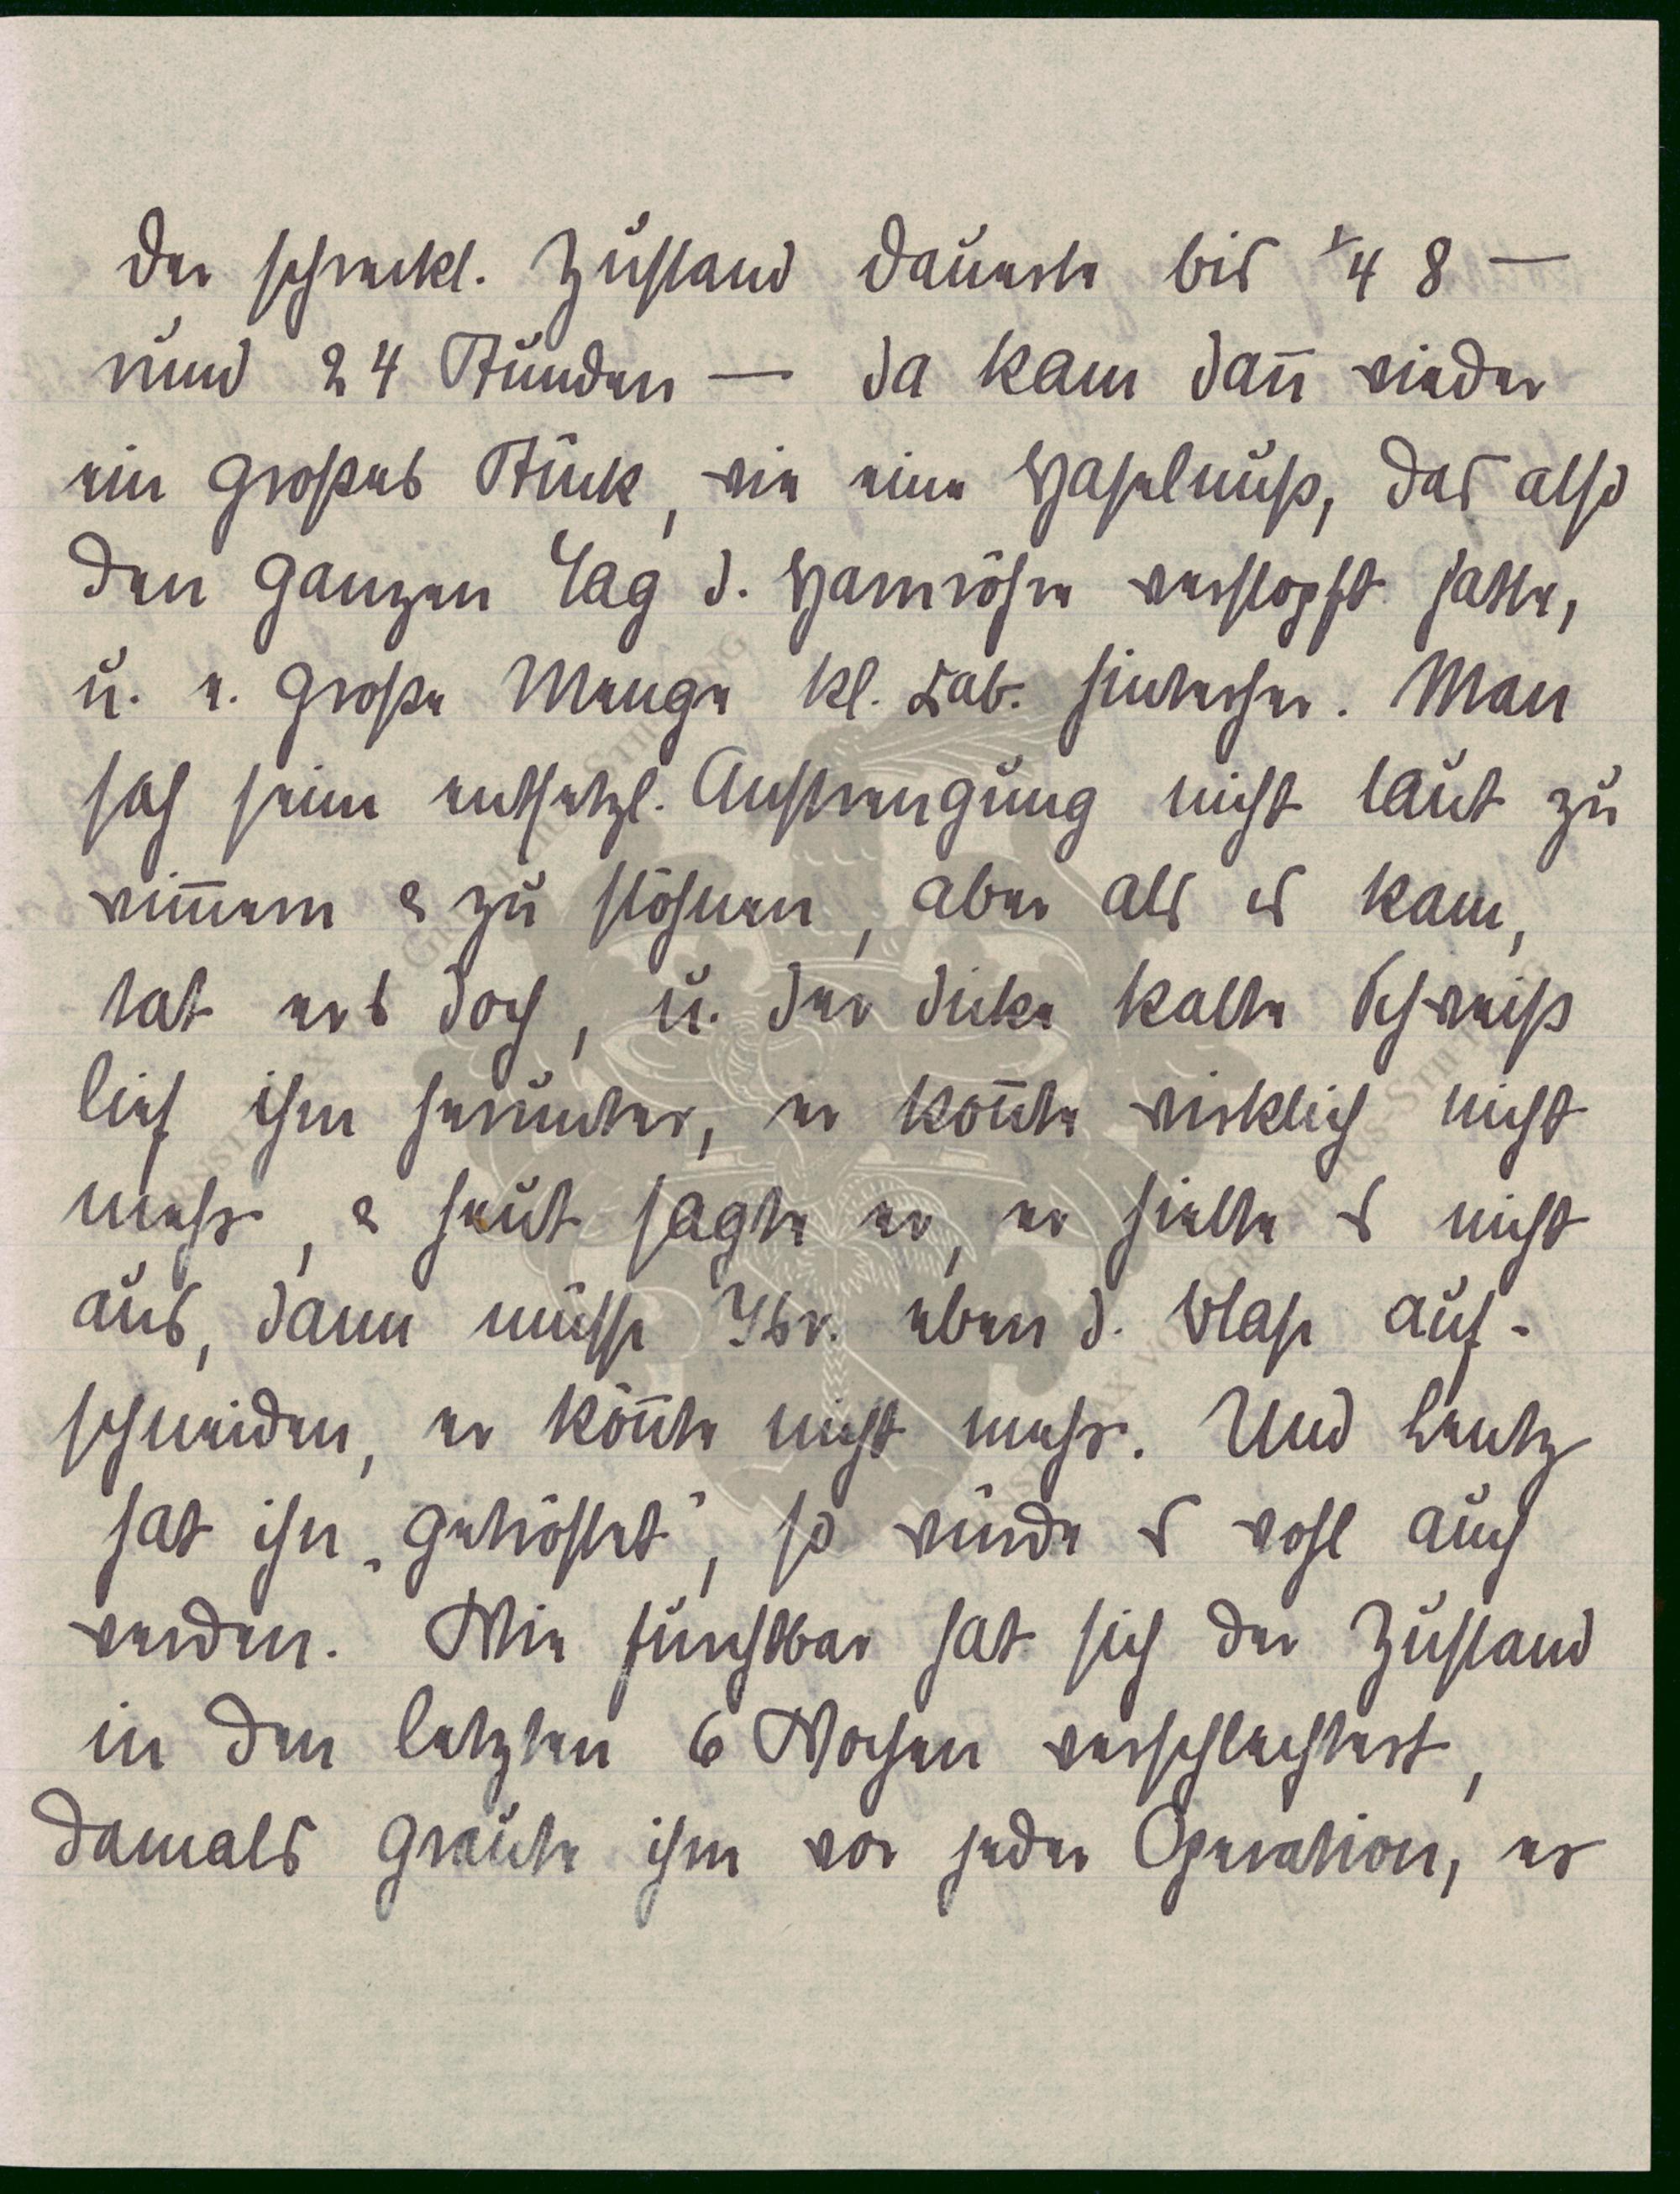 Der schreckl. Zustand dauerte bis ¼ 8 —
rund 24 Stunden — da kam dan̅ wieder
ein großes Stück, wie eine Haselnuß, das also
den ganzen Tag d. Harnröhre verstopft hatte,
u. e. große Menge kl. hinterher. Man
sah seine entsetzl. Anstrengung nicht laut zu
wim̅ern & zu stöhnen, aber als es kam,
tat ers doch, u. der dicke kalte Schweiß
lief ihm herunter, er kon̅te wirklich nicht
mehr, & heut sagte er, er hielte es nicht
aus, dann müsse eben d. Blase auf-
schneiden, er kön̅te nicht mehr. Und Lentz
hat ihn „getröstet", so würde es wohl auch
werden. Wie furchtbar hat sich der Zustand
in den letzten 6 Wochen verschlechtert,
damals graute ihm vor jeder Operation, er